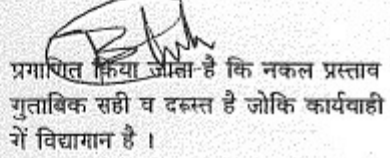 प्रमाणित किया जाता है कि नकल प्रस्ताव
मुताबिक सही व दरूस्त है जोकि कार्यवाही
में विद्यामान है ।